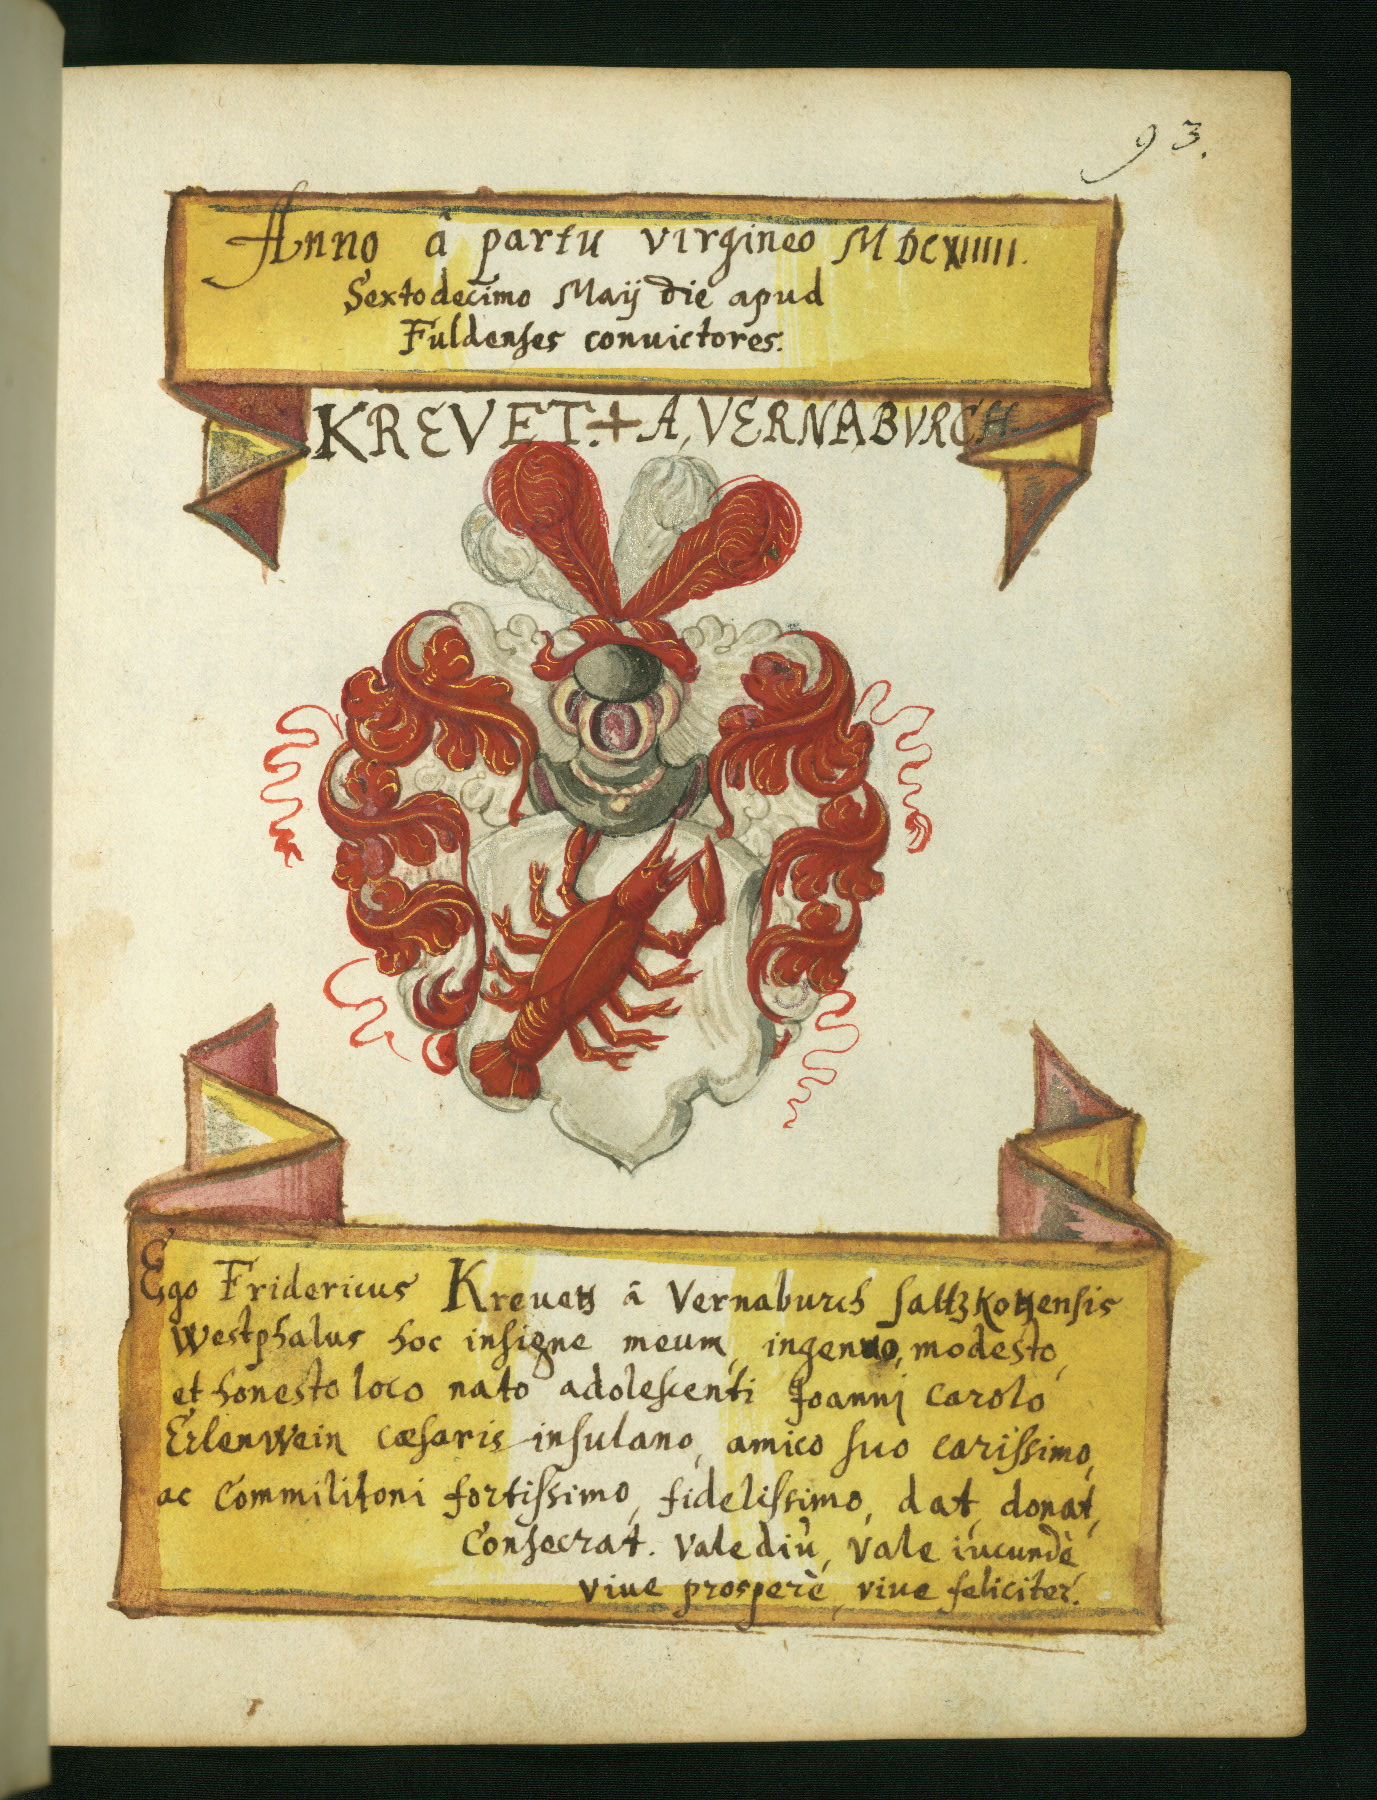 93.
Anno â partu virgineo MDCXIIIII.
Sextodecimo Maÿ die apud
Fuldenses convictores.
KREVET.+A,VERNABVRCH
Ego Fridericus Krevetz â Vernaburch saltzkotzensis
Westphalus hoc insigne meum, ingenuo, modesto,
et honesto loco nato adolescenti Joanni Carolo
Erlenwein cæsaris insulano, amico suo carissimo,
ac Commilitoni fortissimo, fidelissimo, dat, donat,
Consecrat. Vale diù, Vale iucundè
viue prosperè, viue feliciter.